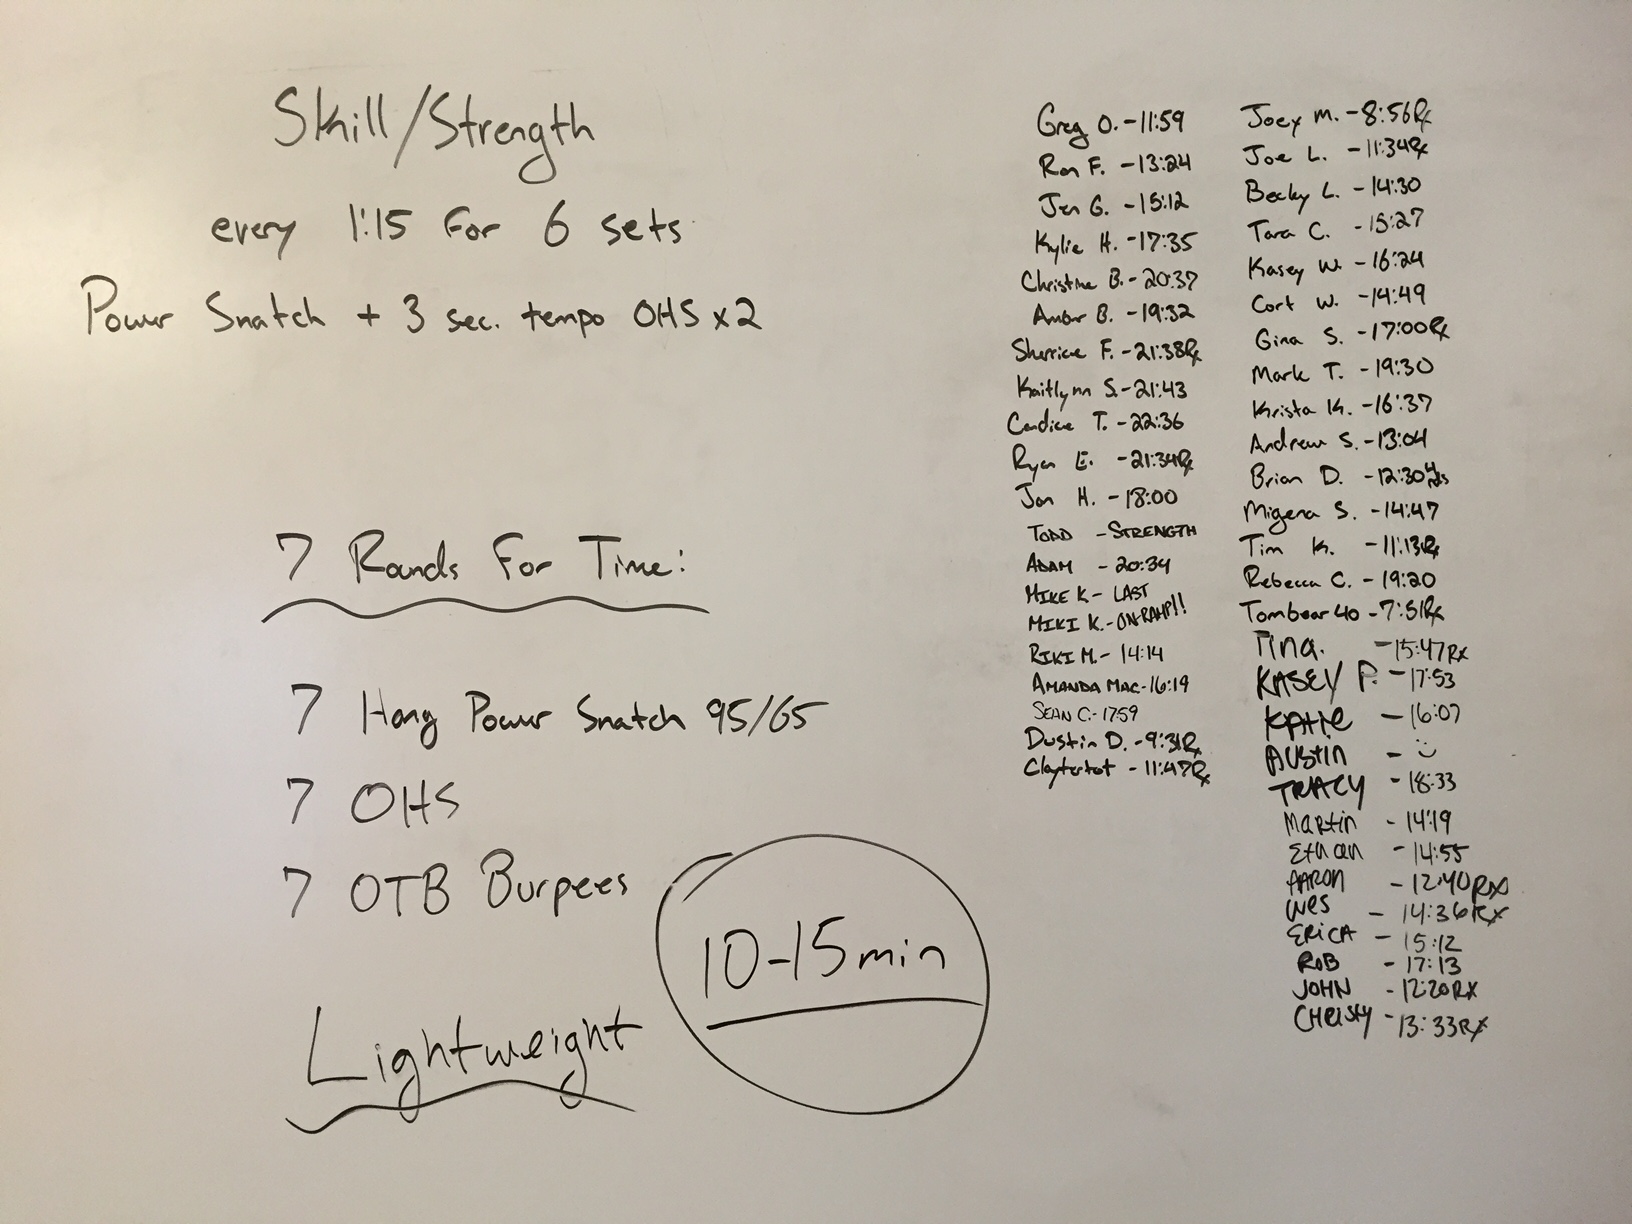 Skill/Strength
every 1:15 For 6 sets
Power Snatch + 3 sec. tempo OHS x2
7 Rounds For Time:
7 Hang Power Snatch 95/65
7 OHS
7 OTB Burpees
10-15min
Lightweight
Greg O. - 11:59
Ron F. - 13:24
Jen G. - 15:12
Kylie H. - 17:35
Christine B. - 20:37
Amber B. - 19:32
Sherrice F. - 21:38Rx
Kaitlynn S. - 21:43
Candice T. - 22:36
Ryan E. - 21:34Rx
Jon H. - 18:00
TODD - STRENGTH
ADAM - 20:34
MIKE K - LAST
MIKI K. - ON-RAMP!!
RIKI M. - 14:14
AMANDA MAC - 16:19
SEAN C. - 17:59
Dustin D. - 9:31Rx
Claytertot - 11:47Rx
Joey M. - 8:56Rx
Joe L. - 11:34Rx
Becky L. - 14:30
Tara C. - 15:27
Kasey W. - 16:24
Cort W. - 14:49
Gina S. - 17:00Rx
Mark T. - 19:30
Krista K. - 16:37
Andrew S. - 13:04
Brian D. - 12:30 4 rds
Migena S. - 14:47
Tim K. - 11:13Rx
Rebecca C. - 19:20
Tombear40 - 7:51Rx
Tina. - 15:47Rx
KASEY P. - 17:53
KATIE - 16:07
AUSTIN -
TRACY - 18:33
Martin - 14:19
Ethan - 14:55
AARON - 12:40RX
WES - 14:36RX
ERICA - 15:12
ROB - 17:13
JOHN - 12:20RX
CHRISTY - 13:33RX